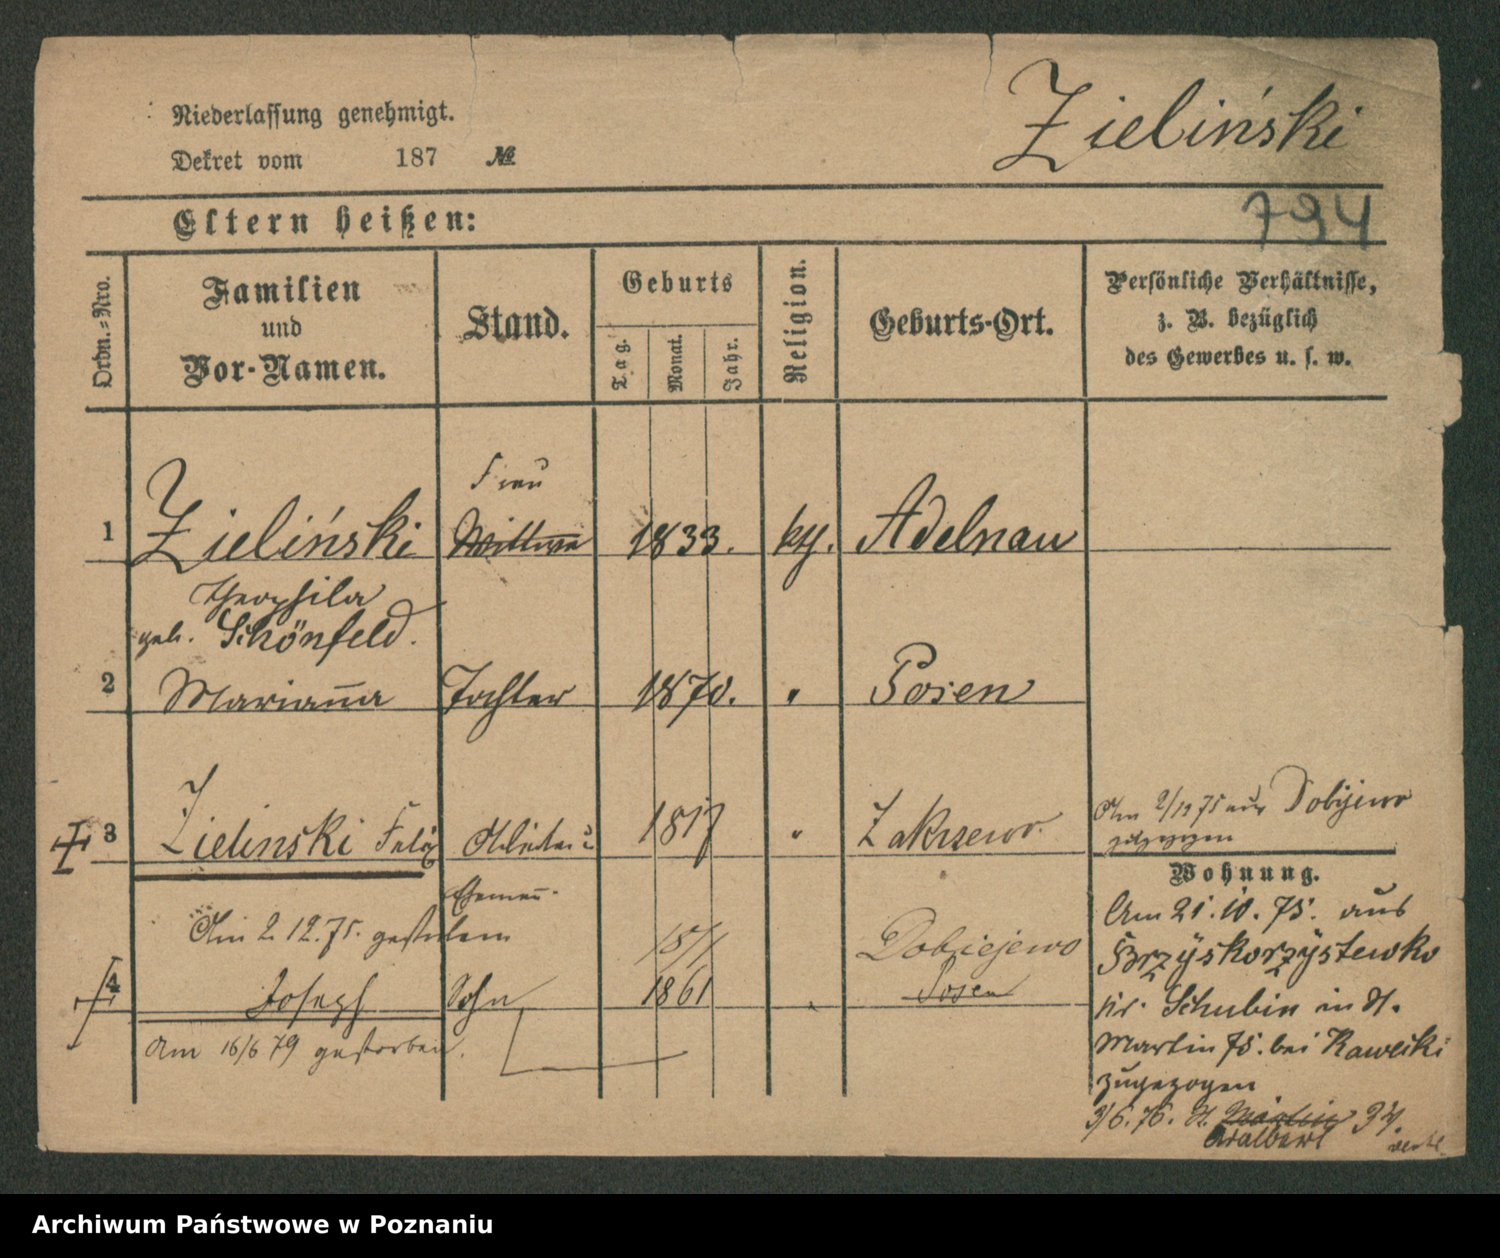 Niederlassung genehmigt.
Dekret vom 187 №
Zieliński
794
Eltern heißen:
Ordn.-Nro.
Familien und Vor-Namen.
Stand.
Geburts
Tag.
Monat.
Jahr.
Religion.
Geburts-Ort.
Persönliche Verhältnisse,
z. B. bezüglich
des Gewerbes u. s. w.
Frau
1 Zieliński Wittwe 1833. kg. Adelnau
Theophila
geb. Schönfeld.
2 Marianna Tochter 1870. " Posen
3 Zielinski Felix 1817 " Zakrzewo.
Am 2/12 75 aus Dobijewo
zugezogen
Ehemann
Am 2. 12. 75. gestorben
Dobiejewo
4 Joseph Sohn 1861 Posen
Am 16/6 79 gestorben.
Wohnung.
Am 21. 10. 75. aus
Brzyskorzystewko
Kr. Schubin in St.
Martin 75. bei Kaweski
zugezogen
3/6. 76. St. Martin 34.
Adalbert
Archiwum Państwowe w Poznaniu